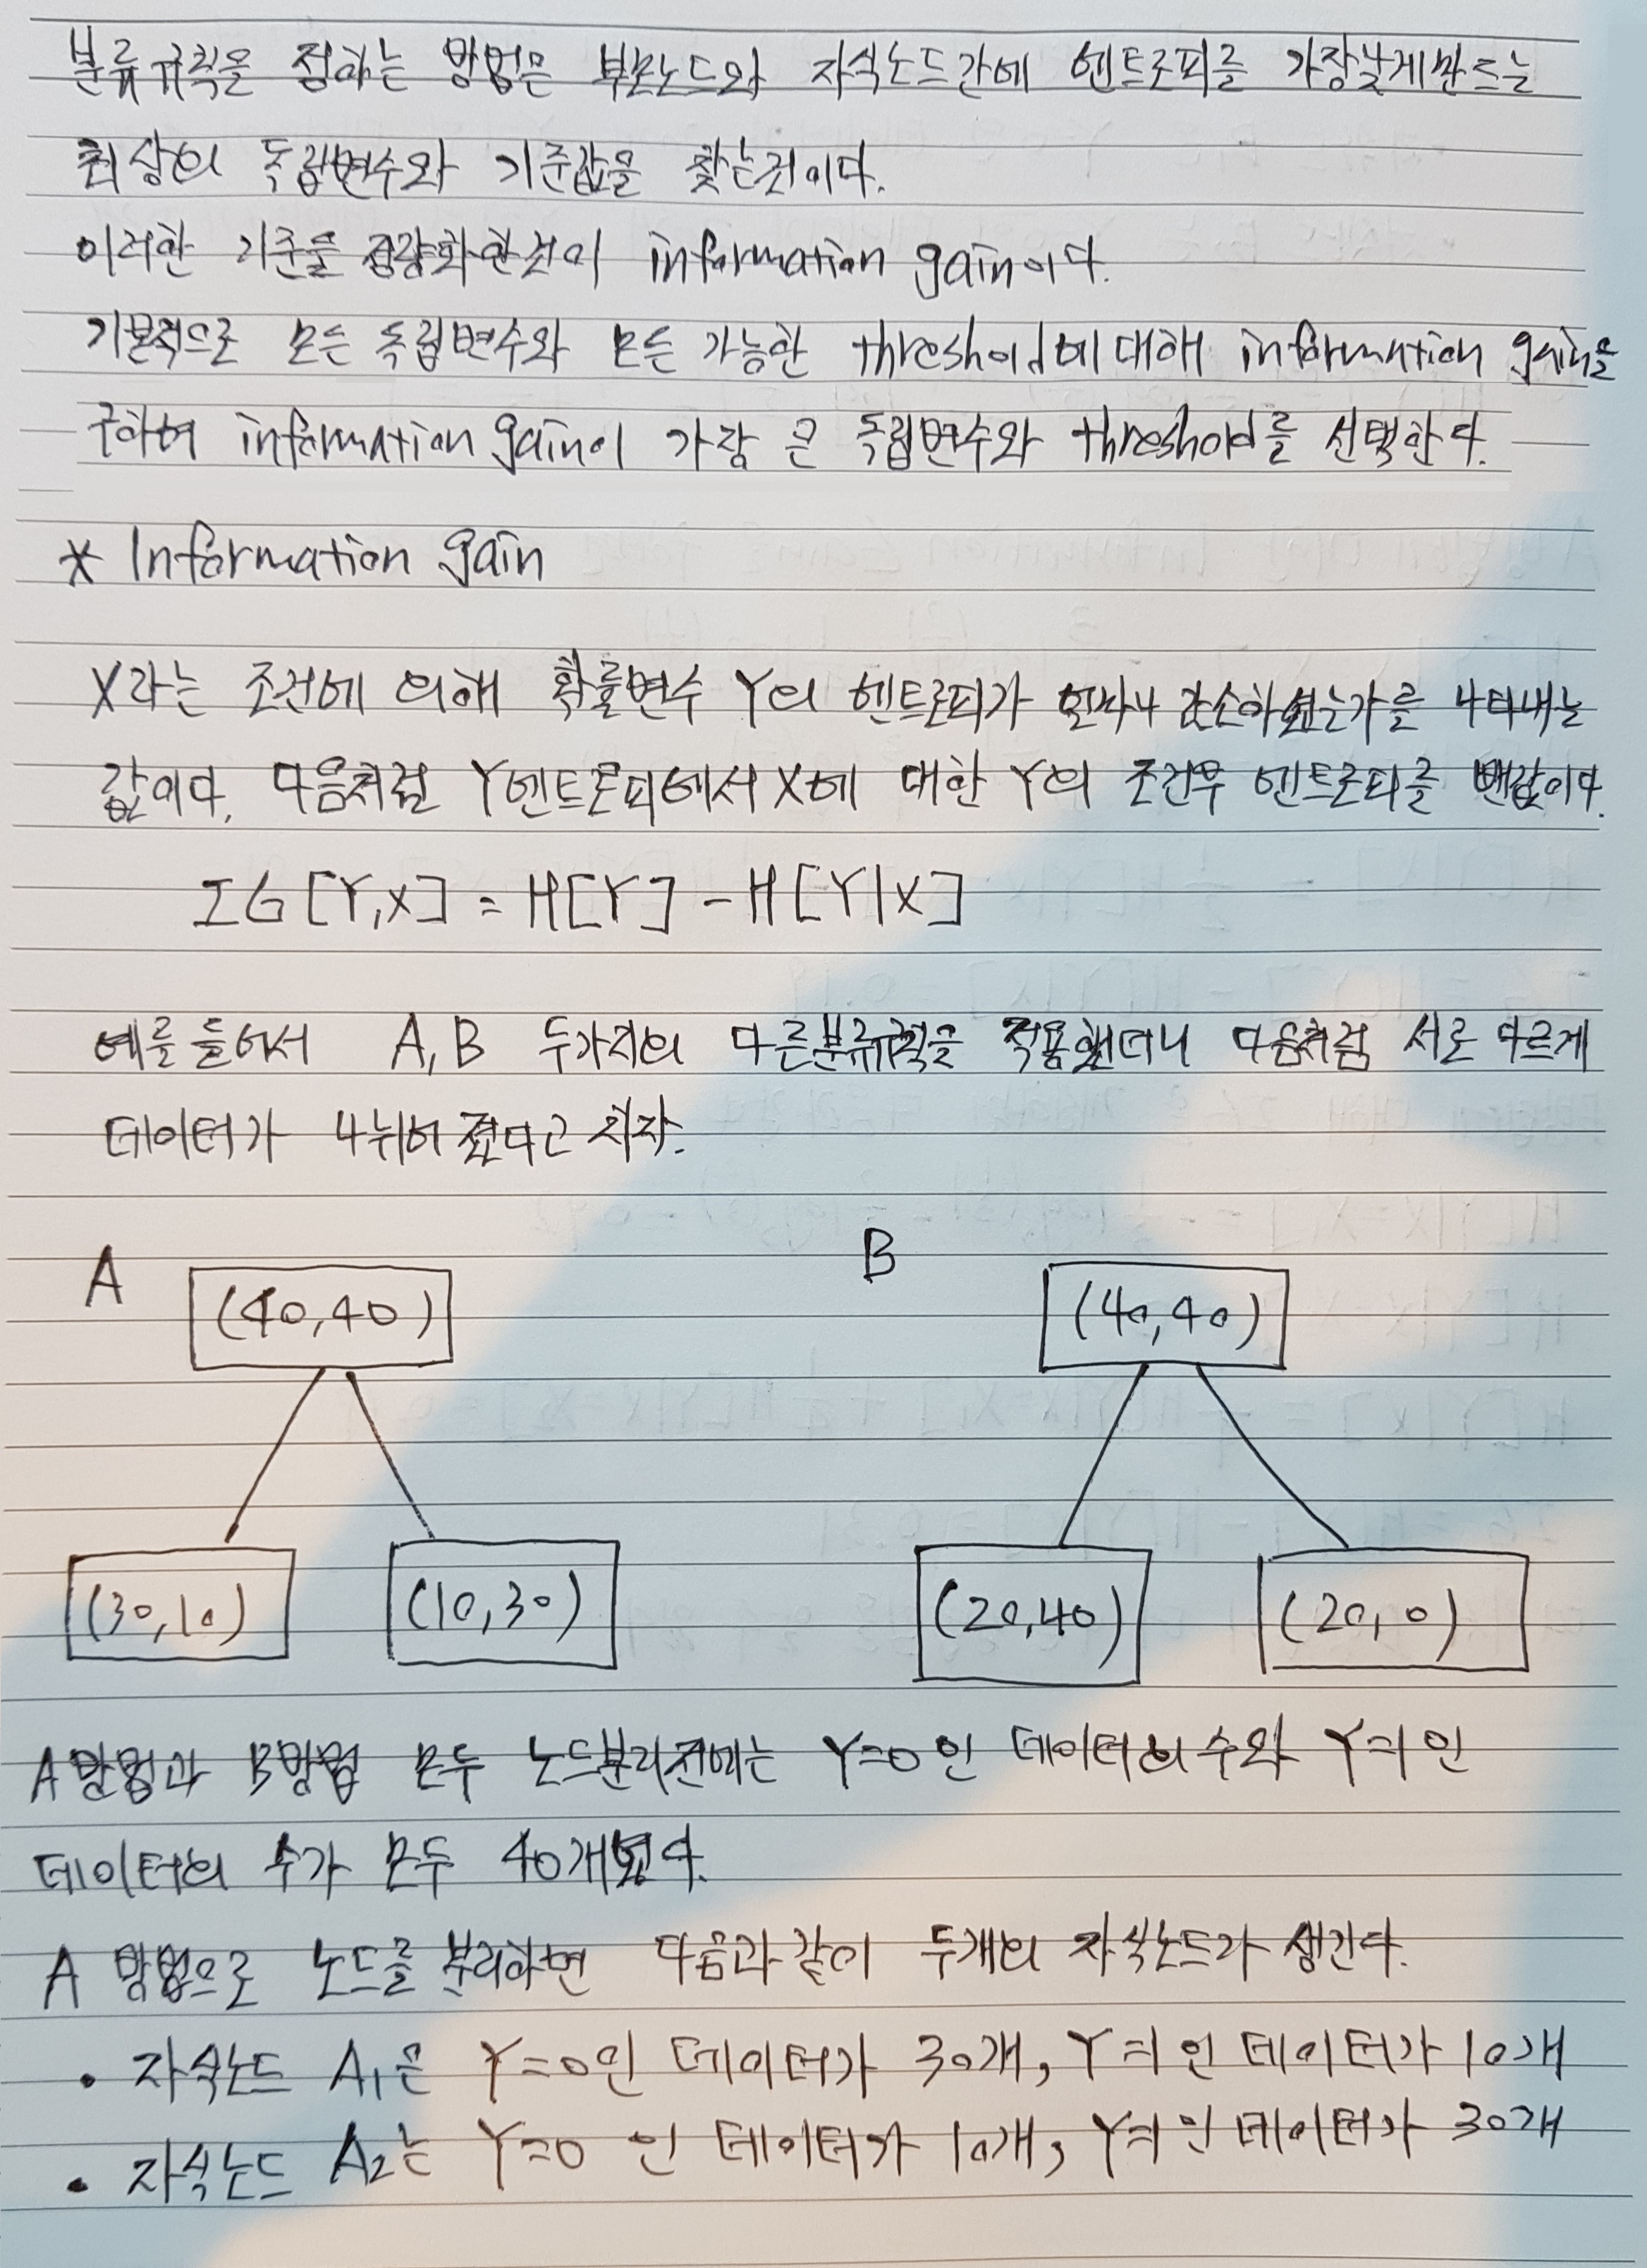 분류규칙을 정하는 방법은 부모노드와 자식노드간에 엔트로피를 가장낮게만드는
최상의 독립변수와 기준값을 찾는것이다.
이러한 기준을 정량화한것이 information gain이다.
기본적으로 모든 독립변수와 모든 가능한 threshold에 대해 information gain을
구하여 information gain이 가장 큰 독립변수와 threshold를 선택한다.
* Information gain
X라는 조건에 의해 확률변수 Y의 엔트로피가 얼마나 감소하였는가를 나타내는
값이다. 다음처럼 Y엔트로피에서 X에 대한 Y의 조건부 엔트로피를 뺀값이다.
IG[Y,X] = H[Y] - H[Y|X]
예를 들어서 A, B 두가지의 다른분류규칙을 적용했더니 다음처럼 서로 다르게
데이터가 나뉘어 졌다고 치자.
A B
(40,40) (40,40)
(30,10) (10,30) (20,40) (20,0)
A방법과 B방법 모두 노드분리전에는 Y=0 인 데이터의 수와 Y=1 인
데이터의 수가 모두 40개였다.
A 방법으로 노드를 분리하면 다음과 같이 두개의 자식노드가 생긴다.
• 자식노드 A₁은 Y=0인 데이터가 30개, Y=1 인 데이터가 10개
• 자식노드 A₂는 Y=0 인 데이터가 10개, Y=1 인 데이터가 30개